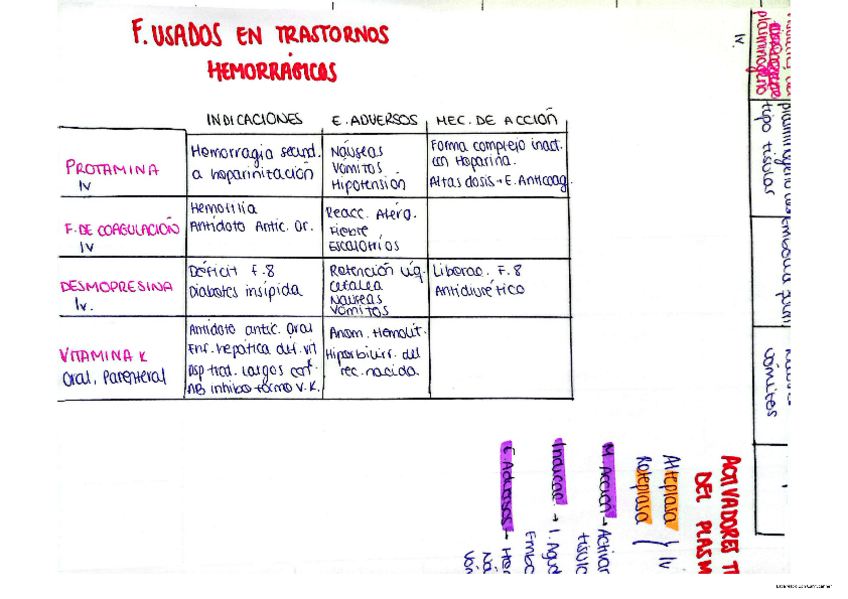 F. USADOS EN TRASTORNOS
HEMORRÁGICOS
INDICACIONES E. ADVERSOS MEC. DE ACCIÓN
PROTAMINA
IV
Hemorragia secund.
a heparinización
Náuseas
Vómitos
Hipotensión
Forma complejo inact.
con Heparina.
Altas dosis → E. Anticoag.
F. DE COAGULACIÓN
IV
Hemofilia
Antídoto Antic. Or.
Reacc. Alérg.
Fiebre
Escalofríos
DESMOPRESINA
Iv.
Déficit F.8
Diabetes insípida
Retención líq.
Cefalea
Náuseas
Vómitos
Liberac. F.8
Antidiurético
VITAMINA K
Oral, Parenteral
Antídoto antic. oral
Enf. hepática def. vit
Dsp trat. largos con
AB inhibe fermo V.K.
Anem. Hemolít.
Hiperbilirr. del
rec. nacido.
IV.
plasminógeno
tipo tisular
vómitos
ACTIVADORES TI
DEL PLASM
Alteplasa
Reteplasa } IV
M. Acción → Activar
tisula
Indicac → I. Agud
Embo
E. Adversos → Her
Ná
Vóm